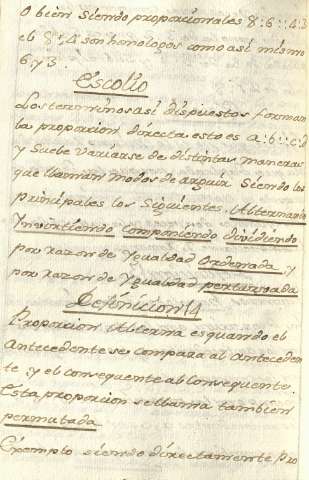 O bien siendo proporcionales 8:6::4:3
el 8 y 4 son homologos como asi mismo
6 y 3.
Escolio
Los terminos asi dispuestos forman
la proporcion directa esto es a:b::c:d
y suele variarse de distintas maneras
que llaman modos de arguir siendo los
principales los siguientes, Alternando
Ynvirtiendo componiendo dividiendo
por razon de Ygualdad Ordenada y
por razon de Ygualdad perturvada
Definicion 14
Proporcion Alterna es quando el
Antecedente se compara al Anteceden
te y el consequente al consequente.
Esta proporcion se llama tambien
permutada
Exemplo siendo directamente pro